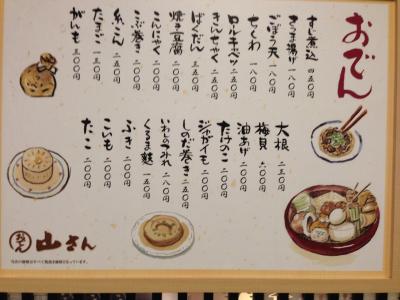 おでん
すじ煮込 四五〇円
さつま揚げ 一八〇円
ごぼう天 一八〇円
ちくわ 一八〇円
ロールキャベツ 二五〇円
きんちゃく 二五〇円
ばくだん 三五〇円
焼き豆腐 二〇〇円
こんにゃく 二〇〇円
こぶ巻き 二〇〇円
糸こん 二五〇円
たまご 一五〇円
がんも 三〇〇円
大根 二五〇円
梅貝 六〇〇円
油あげ 二〇〇円
たけのこ 二〇〇円
ジャガイモ 二〇〇円
しのだ巻き 二五〇円
いわしのつみれ 二八〇円
くるま麩 一五〇円
ふき 二〇〇円
こいも 二〇〇円
たこ 二〇〇円
山さん